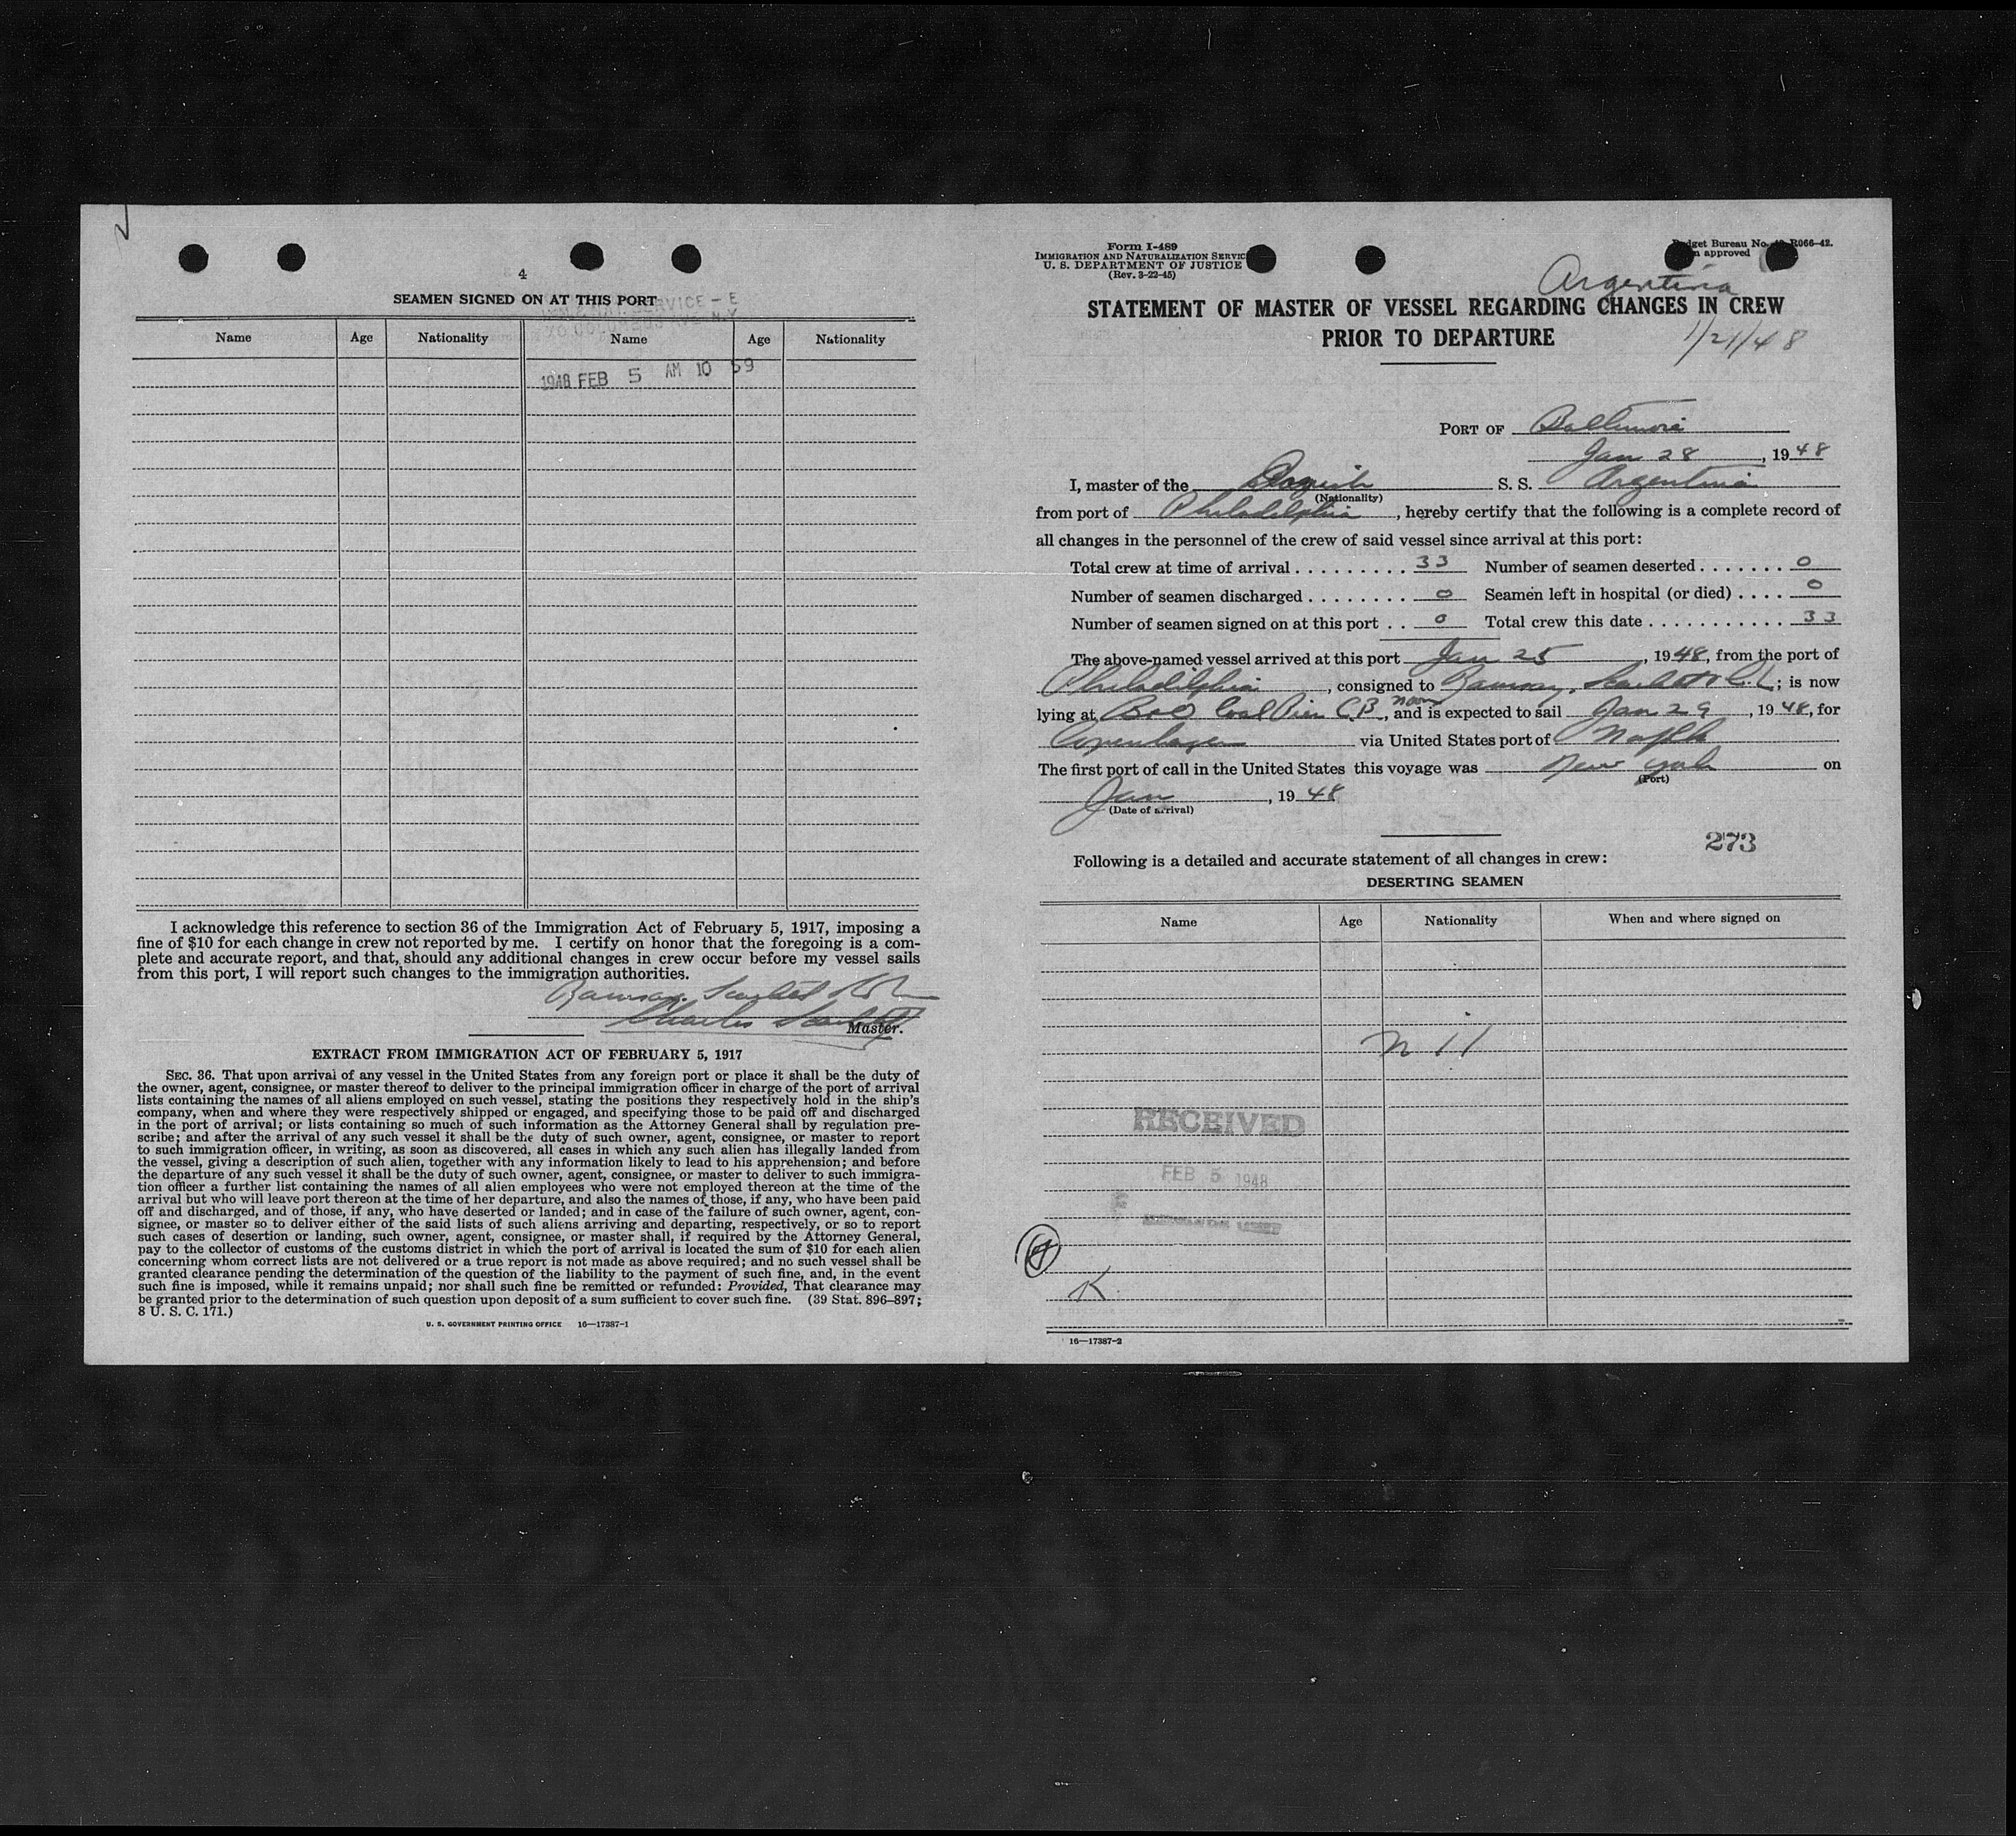 4
SEAMEN SIGNED ON AT THIS PORT
Name Age Nationality Name Age Nationality
1948 FEB 5 AM 10 59
I acknowledge this reference to section 36 of the Immigration Act of February 5, 1917, imposing a
fine of $10 for each change in crew not reported by me. I certify on honor that the foregoing is a com-
plete and accurate report, and that, should any additional changes in crew occur before my vessel sails
from this port, I will report such changes to the immigration authorities.
Ramsay, Scarlett & Co
Charles Scarlett
Master.
EXTRACT FROM IMMIGRATION ACT OF FEBRUARY 5, 1917
SEC. 36. That upon arrival of any vessel in the United States from any foreign port or place it shall be the duty of
the owner, agent, consignee, or master thereof to deliver to the principal immigration officer in charge of the port of arrival
lists containing the names of all aliens employed on such vessel, stating the positions they respectively hold in the ship's
company, when and where they were respectively shipped or engaged, and specifying those to be paid off and discharged
in the port of arrival; or lists containing so much of such information as the Attorney General shall by regulation pre-
scribe; and after the arrival of any such vessel it shall be the duty of such owner, agent, consignee, or master to report
to such immigration officer, in writing, as soon as discovered, all cases in which any such alien has illegally landed from
the vessel, giving a description of such alien, together with any information likely to lead to his apprehension; and before
the departure of any such vessel it shall be the duty of such owner, agent, consignee, or master to deliver to such immigra-
tion officer a further list containing the names of all alien employees who were not employed thereon at the time of the
arrival but who will leave port thereon at the time of her departure, and also the names of those, if any, who have been paid
off and discharged, and of those, if any, who have deserted or landed; and in case of the failure of such owner, agent, con-
signee, or master so to deliver either of the said lists of such aliens arriving and departing, respectively, or so to report
such cases of desertion or landing, such owner, agent, consignee, or master shall, if required by the Attorney General,
pay to the collector of customs of the customs district in which the port of arrival is located the sum of $10 for each alien
concerning whom correct lists are not delivered or a true report is not made as above required; and no such vessel shall be
granted clearance pending the determination of the question of the liability to the payment of such fine, and, in the event
such fine is imposed, while it remains unpaid; nor shall such fine be remitted or refunded: Provided, That clearance may
be granted prior to the determination of such question upon deposit of a sum sufficient to cover such fine. (39 Stat. 896–897;
8 U. S. C. 171.)
U. S. GOVERNMENT PRINTING OFFICE 16—17387-1
Form I-489
IMMIGRATION AND NATURALIZATION SERVICE
U. S. DEPARTMENT OF JUSTICE
(Rev. 3-22-45)
Budget Bureau No. R066-42.
approved
Argentina
STATEMENT OF MASTER OF VESSEL REGARDING CHANGES IN CREW
PRIOR TO DEPARTURE
1/21/48
PORT OF Baltimore
Jan 28, 1948
I, master of the Danish S. S. Argentina
(Nationality)
from port of Philadelphia, hereby certify that the following is a complete record of
all changes in the personnel of the crew of said vessel since arrival at this port:
Total crew at time of arrival . . . . . . . . . 33 Number of seamen deserted . . . . . . . 0
Number of seamen discharged . . . . . . . . 0 Seamen left in hospital (or died) . . . . 0
Number of seamen signed on at this port . . 0 Total crew this date . . . . . . . . . . . 33
The above-named vessel arrived at this port Jan 25, 1948, from the port of
Philadelphia, consigned to Ramsay, Scarlett & Co; is now
lying at B&O Coal Pier C.B, and is expected to sail noon Jan 29, 1948, for
Copenhagen via United States port of Norfolk
The first port of call in the United States this voyage was New York on
(Port)
Jan, 1948
(Date of arrival)
273
Following is a detailed and accurate statement of all changes in crew:
DESERTING SEAMEN
Name Age Nationality When and where signed on
Nil
RECEIVED
FEB 5 1948
K
16—17387-2